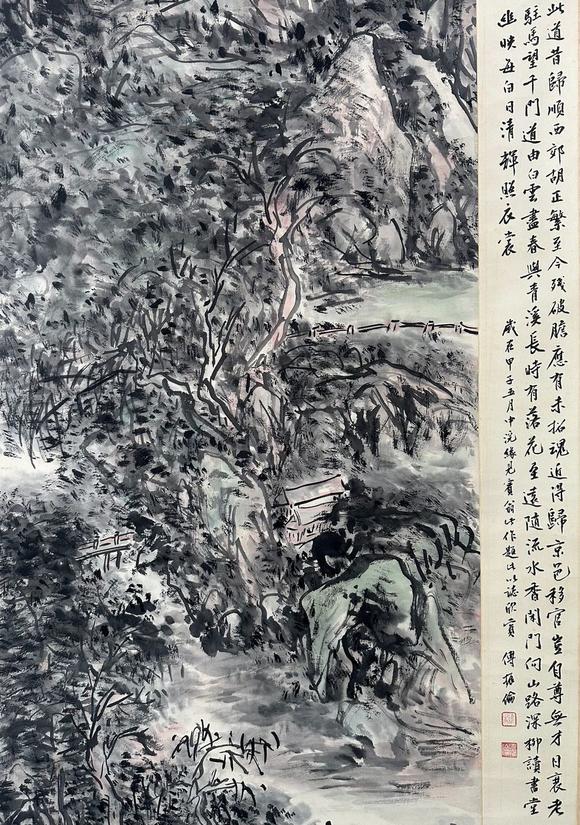 此道昔歸順西郊胡正繁至今残破膽應有未招魂近得歸京邑移官豈自尊無才日衰老
駐馬望千門道由白雲盡春與青溪長時有落花至遠隨流水香閑門向山路深柳讀書堂
幽映每白日清輝照衣裳 歲在甲子五月中浣緣見賓翁此作題此以誌欣賞 傅振倫